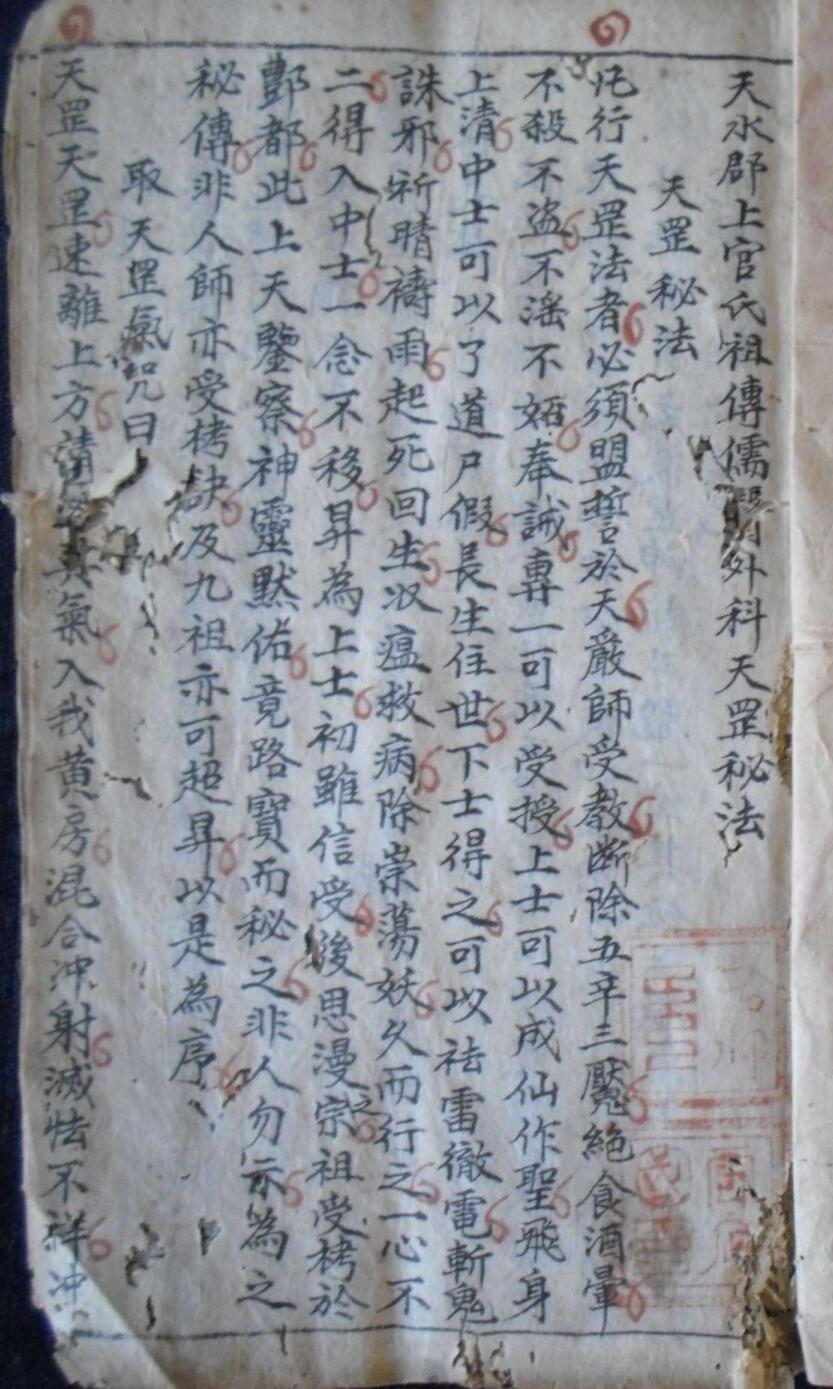 天水郡上官氏祖傳儒門外科天罡秘法
天罡秘法
凡行天罡法者必須盟誓於天嚴師受教斷除五辛三魘絕食酒暈
不殺不盜不滛不妬奉誡專一可以受授上士可以成仙作聖飛身
上清中士可以了道尸假長生住世下士得之可以祛雷徹電斬鬼
誅邪祈晴禱雨起死回生收瘟救病除祟蕩妖久而行之一心不
二得入中士一念不移昇為上士初雖信受後思漫之宗祖受栲於
酆都此上天鑒察神靈默佑竟路寶而秘之非人勿示為之
秘傳非人師亦受栲訣及九祖亦可超昇以是為序
取天罡氣咒曰
天罡天罡速離上方請 真氣入我黃房混合沖射滅怯不祥沖